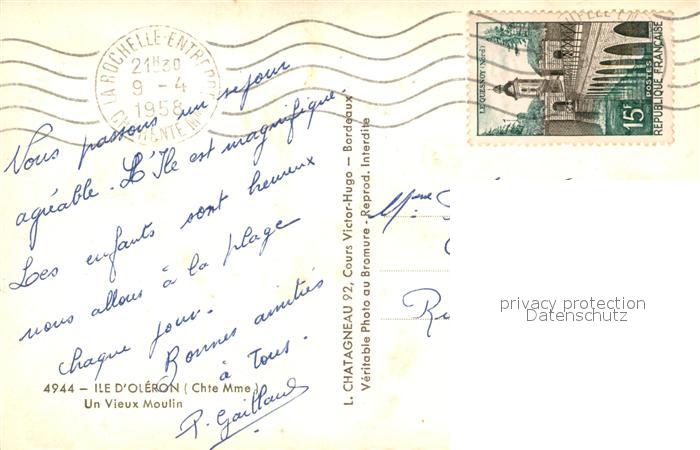 LA ROCHELLE-ENTREPOT
21H30
9 - 4
1958
CHARENTE MME
LE QUESNOY (Nord)
15F
POSTES
REPUBLIQUE FRANÇAISE
Vous passons un sejour
agréable. L'Ile est magnifique.
Les enfants sont heureux
nous allons à la plage
chaque jour.
Bonnes amitiés
à Tous.
P. Gaillard
4944 — ILE D'OLÉRON (Chte Mme)
Un Vieux Moulin
L. CHATAGNEAU 92, Cours Victor-Hugo — Bordeaux
Véritable Photo au Bromure - Reprod. Interdite
Mme
privacy protection
Datenschutz